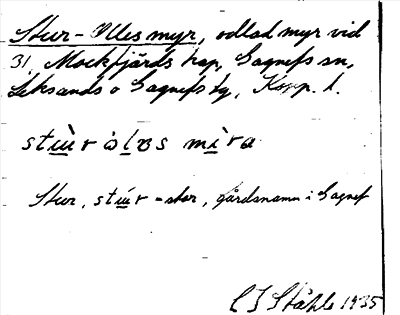 Stur-Olles myr, odlad myr vid
31, Mockfjärds kap, Gagnefs sn,
Leksands o Gagnefs tg, Kopp. l.
Stur, = stor, gårdsnamn i Gagnef
C I Ståhle 1935